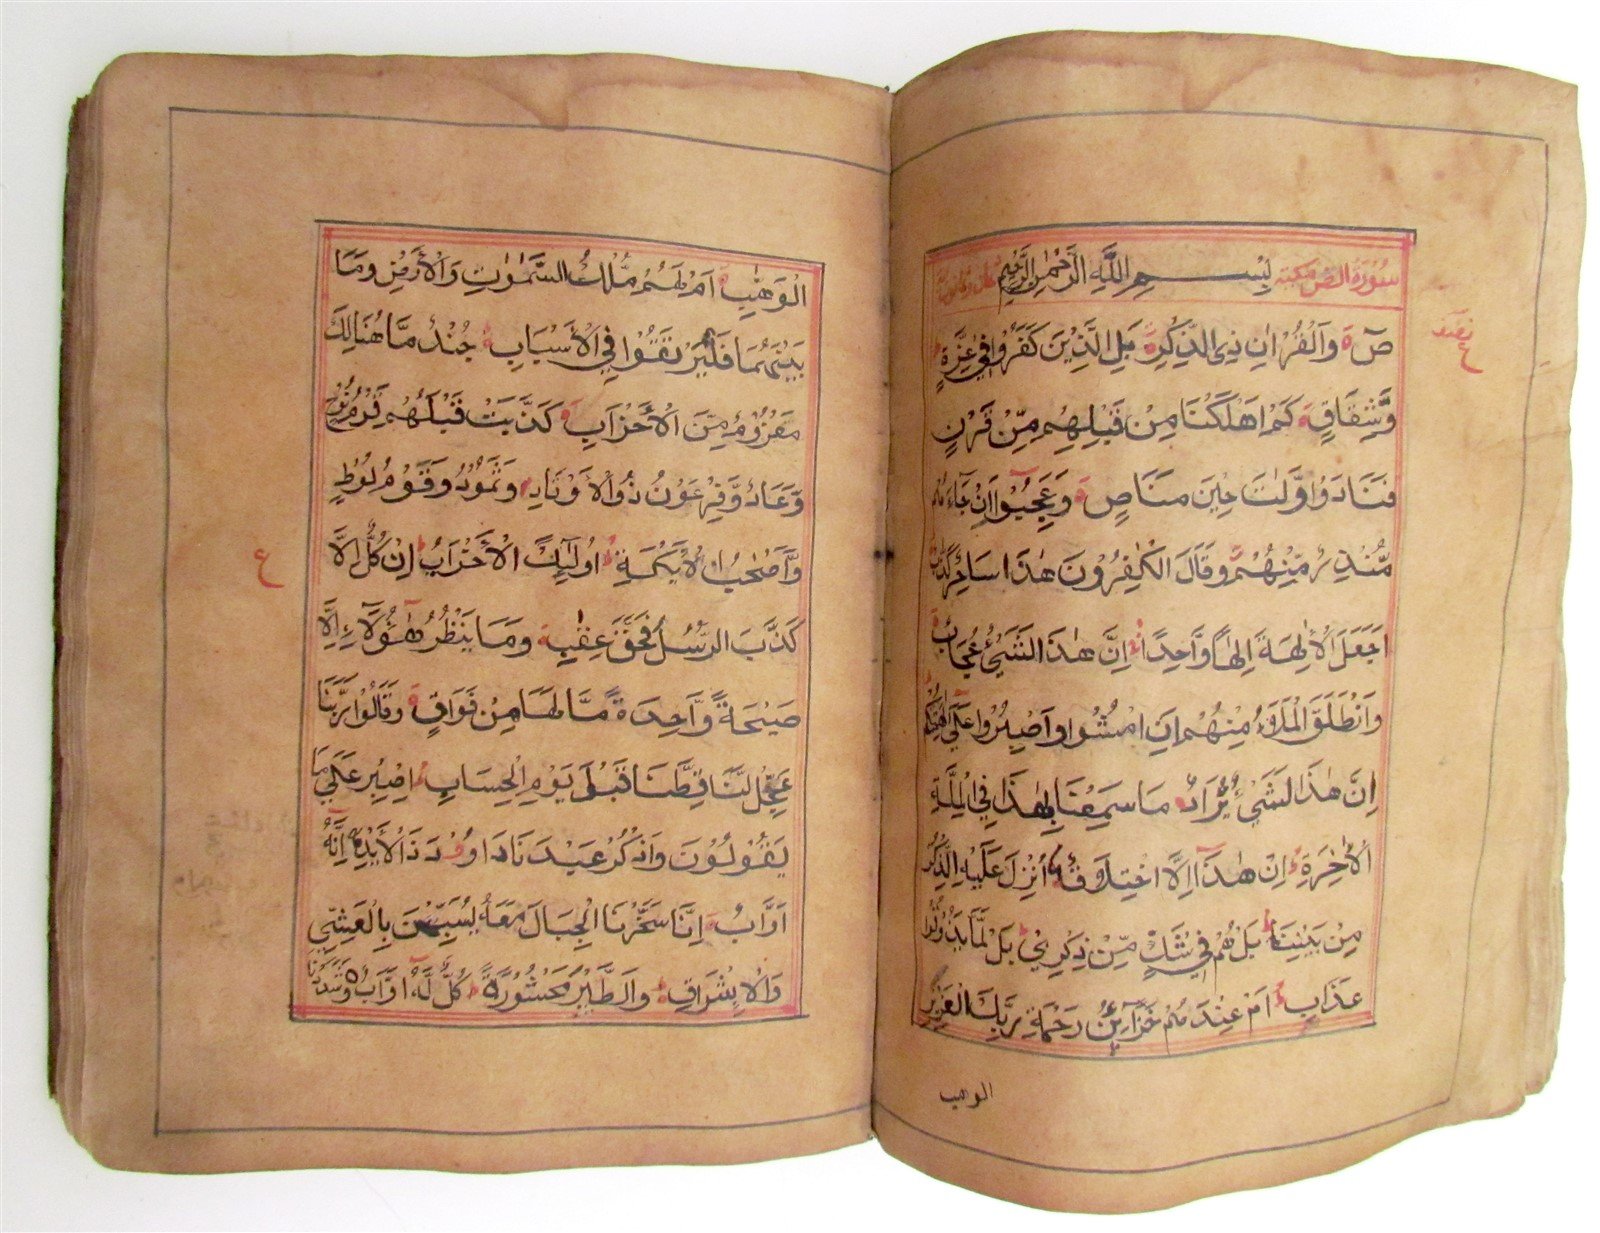 سُوْرَةُ الصٓ مكية بِسْــــــمِ اللّٰهِ الرَّحْمٰنِ الرَّحِيْمِ
نصف
ع
صٓ وَالْقُرْاٰنِ ذِى الذِّكْرِ بَلِ الَّذِيْنَ كَفَرُوْا فِيْ عِزَّةٍ
وَّشِقَاقٍ كَمْ اَهْلَكْنَا مِنْ قَبْلِهِمْ مِّنْ قَرْنٍ
فَنَادَوْا وَّلَاتَ حِيْنَ مَنَاصٍ وَعَجِبُوْٓا اَنْ جَآءَهُمْ
مُّنْذِرٌ مِّنْهُمْ وَقَالَ الْكٰفِرُوْنَ هٰذَا سَاحِرٌ كَذَّابٌ
اَجَعَلَ الْاٰلِهَةَ اِلٰهًا وَّاحِدًا اِنَّ هٰذَا لَشَيْءٌ عُجَابٌ
وَانْطَلَقَ الْمَلَاُ مِنْهُمْ اَنِ امْشُوْا وَاصْبِرُوْا عَلٰٓى اٰلِهَتِكُمْ
اِنَّ هٰذَا لَشَيْءٌ يُّرَادُ مَا سَمِعْنَا بِهٰذَا فِي الْمِلَّةِ
الْاٰخِرَةِ اِنْ هٰذَآ اِلَّا اخْتِلَاقٌ ءَاُنْزِلَ عَلَيْهِ الذِّكْرُ
مِنْ بَيْنِنَا بَلْ هُمْ فِيْ شَكٍّ مِّنْ ذِكْرِيْ بَلْ لَّمَّا يَذُوْقُوْا
عَذَابِ اَمْ عِنْدَهُمْ خَزَآئِنُ رَحْمَةِ رَبِّكَ الْعَزِيْزِ
الوهب
الْوَهَّابِ اَمْ لَهُمْ مُّلْكُ السَّمٰوٰتِ وَالْاَرْضِ وَمَا
بَيْنَهُمَا فَلْيَرْتَقُوْا فِي الْاَسْبَابِ جُنْدٌ مَّا هُنَالِكَ
مَهْزُوْمٌ مِّنَ الْاَحْزَابِ كَذَّبَتْ قَبْلَهُمْ قَوْمُ نُوْحٍ
وَّعَادٌ وَّفِرْعَوْنُ ذُو الْاَوْتَادِ وَثَمُوْدُ وَقَوْمُ لُوْطٍ
وَّاَصْحٰبُ الْاَيْكَةِ اُولٰٓئِكَ الْاَحْزَابُ اِنْ كُلٌّ اِلَّا
كَذَّبَ الرُّسُلَ فَحَقَّ عِقَابِ وَمَا يَنْظُرُ هٰٓؤُلَآءِ اِلَّا
صَيْحَةً وَّاحِدَةً مَّا لَهَا مِنْ فَوَاقٍ وَقَالُوْا رَبَّنَا
عَجِّلْ لَّنَا قِطَّنَا قَبْلَ يَوْمِ الْحِسَابِ اِصْبِرْ عَلٰى مَا
يَقُوْلُوْنَ وَاذْكُرْ عَبْدَنَا دَاوٗدَ ذَا الْاَيْدِ اِنَّهٗ
اَوَّابٌ اِنَّا سَخَّرْنَا الْجِبَالَ مَعَهٗ يُسَبِّحْنَ بِالْعَشِيِّ
وَالْاِشْرَاقِ وَالطَّيْرَ مَحْشُوْرَةً كُلٌّ لَّهٗٓ اَوَّابٌ وَشَدَدْنَا
ع